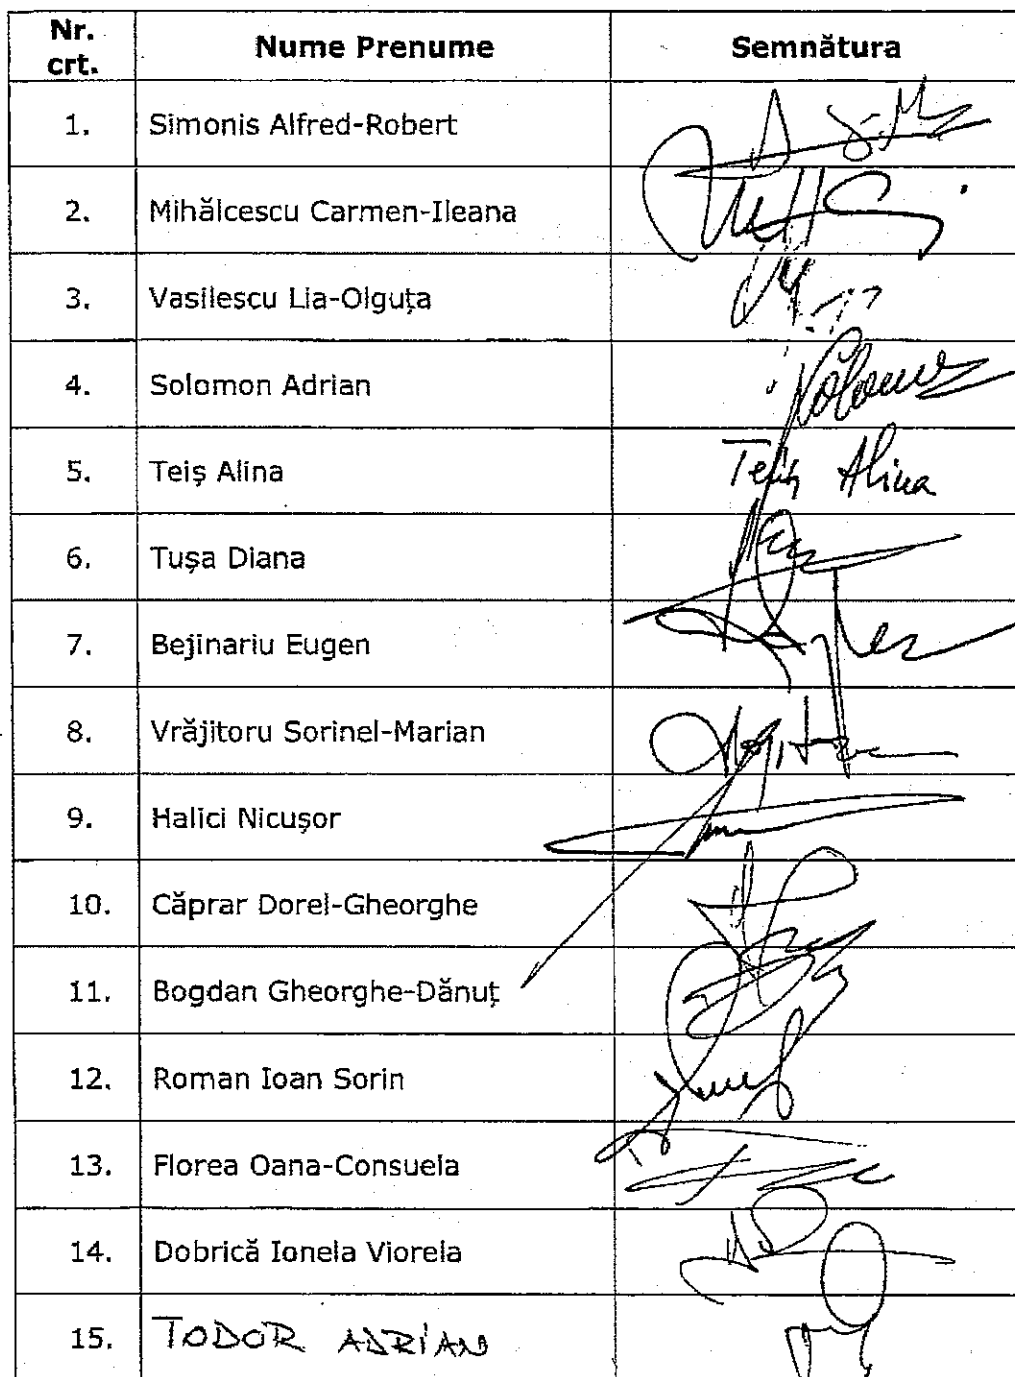 Nr. crt. Nume Prenume Semnătura
1. Simonis Alfred-Robert
2. Mihălcescu Carmen-Ileana
3. Vasilescu Lia-Olguța
4. Solomon Adrian
5. Teiş Alina Teiș Alina
6. Tuşa Diana
7. Bejinariu Eugen
8. Vrăjitoru Sorinel-Marian
9. Halici Nicuşor
10. Căprar Dorel-Gheorghe
11. Bogdan Gheorghe-Dănuț
12. Roman Ioan Sorin
13. Florea Oana-Consuela
14. Dobrică Ionela Viorela
15. TODOR ADRIAN